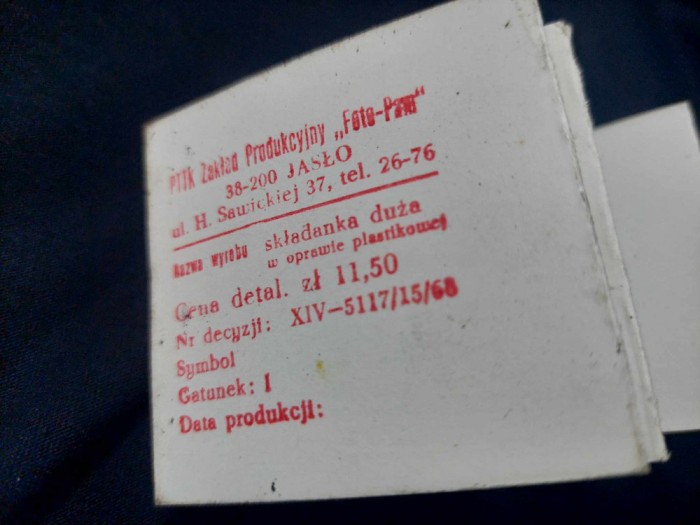 PTTK Zakład Produkcyjny „Foto-Pam"
38-200 JASŁO
ul. H. Sawickiej 37, tel. 26-76
Nazwa wyrobu składanka duża
w oprawie plastikowej
Cena detal. zł 11,50
Nr decyzji: XIV-5117/15/68
Symbol
Gatunek: I
Data produkcji: